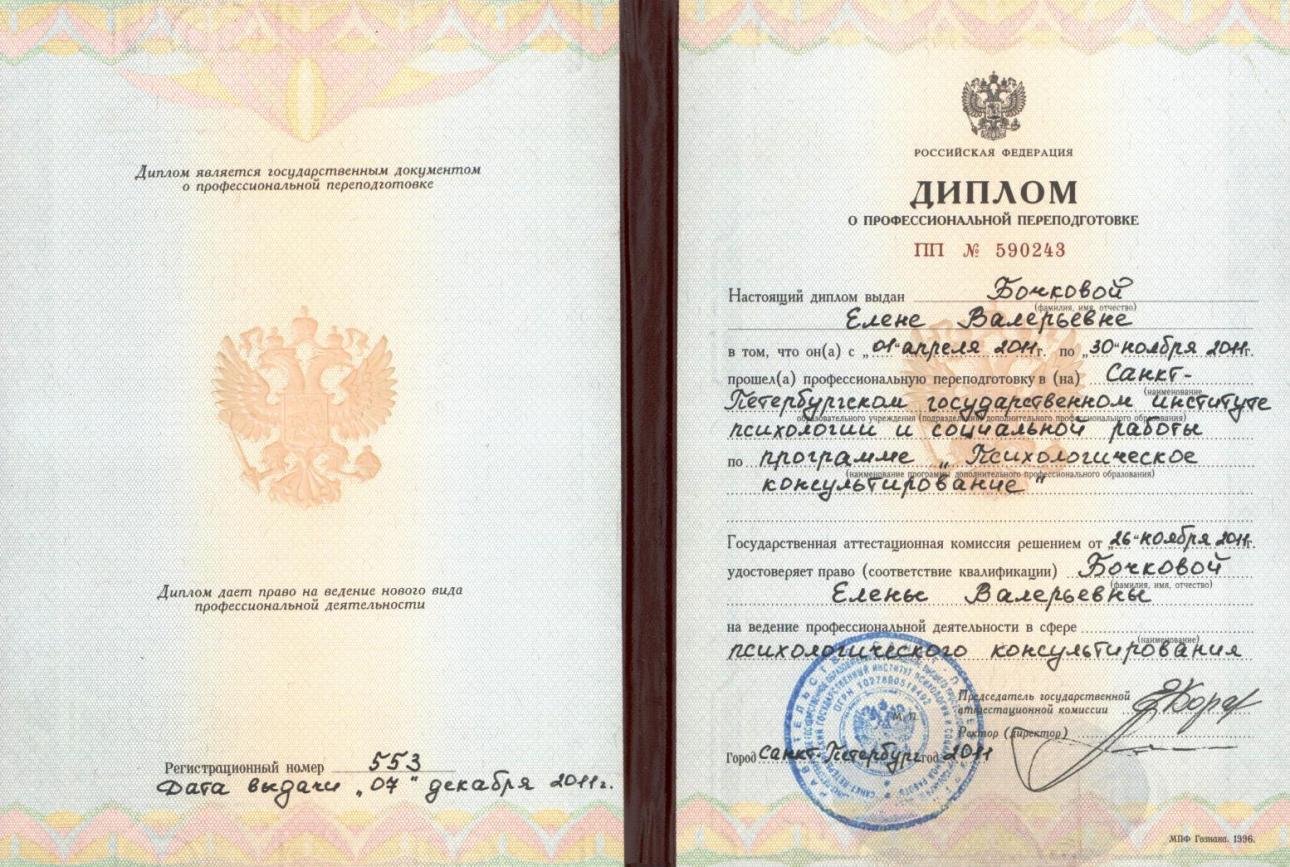 Диплом является государственным документом
о профессиональной переподготовке
Диплом дает право на ведение нового вида
профессиональной деятельности
Регистрационный номер 553
Дата выдачи „07" декабря 2011г.
РОССИЙСКАЯ ФЕДЕРАЦИЯ
ДИПЛОМ
О ПРОФЕССИОНАЛЬНОЙ ПЕРЕПОДГОТОВКЕ
ПП № 590243
Настоящий диплом выдан Бочковой
(фамилия, имя, отчество)
Елене Валерьевне
в том, что он(а) с „01" апреля 2011г. по „30" ноября 2011г.
прошел(а) профессиональную переподготовку в (на) Санкт-
(наименование
Петербургском государственном институте
образовательного учреждения (подразделения) дополнительного профессионального образования)
психологии и социальной работы
по программе „Психологическое
(наименование программы дополнительного профессионального образования)
консультирование"
Государственная аттестационная комиссия решением от „26" ноября 2011г.
удостоверяет право (соответствие квалификации) Бочковой
(фамилия, имя, отчество)
Елены Валерьевны
на ведение профессиональной деятельности в сфере
(наименование)
психологического консультирования
Председатель государственной
аттестационной комиссии
М.П.
Ректор (директор)
Город Санкт-Петербург год 2011
ОГРН 1027800518492
МПФ Гознака. 1996.